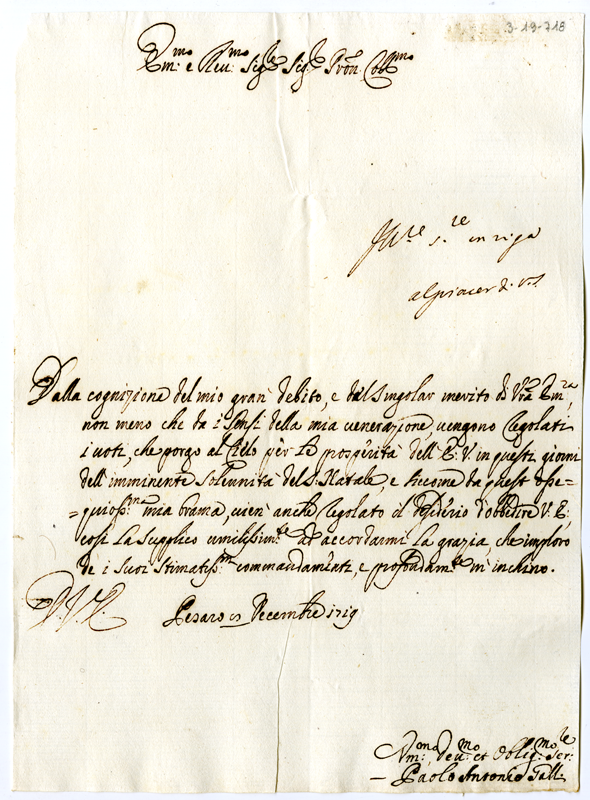 3-19-718
Em:mo e Rev:mo Sig:re Sig:re Pron Col:mo
s.re in riga
al piacer di V.S.
Dalla cognizione del mio gran debito, e dal singolar merito di Vra Em:za
non meno che da i sensi della mia venerazione, vengono regolati
i voti, che porgo al Cielo per le prosperità dell'E: V. in questi giorni
dell'imminente solennità del S: Natale, e siccome da quest osse=
=quioss:ma mia brama, vien'anche regolato il desiderio d'obbedire V: E:
così La supplico umilissim:te ad accordarmi la grazia, che imploro
de i suoi stimatiss:mi commandam:ti, e profondam:te m'inchino.
D. V. E.
Pesaro Decembre 1719
Um:mo Dev:mo et Oblig:mo Ser:re
Paolo Antonio